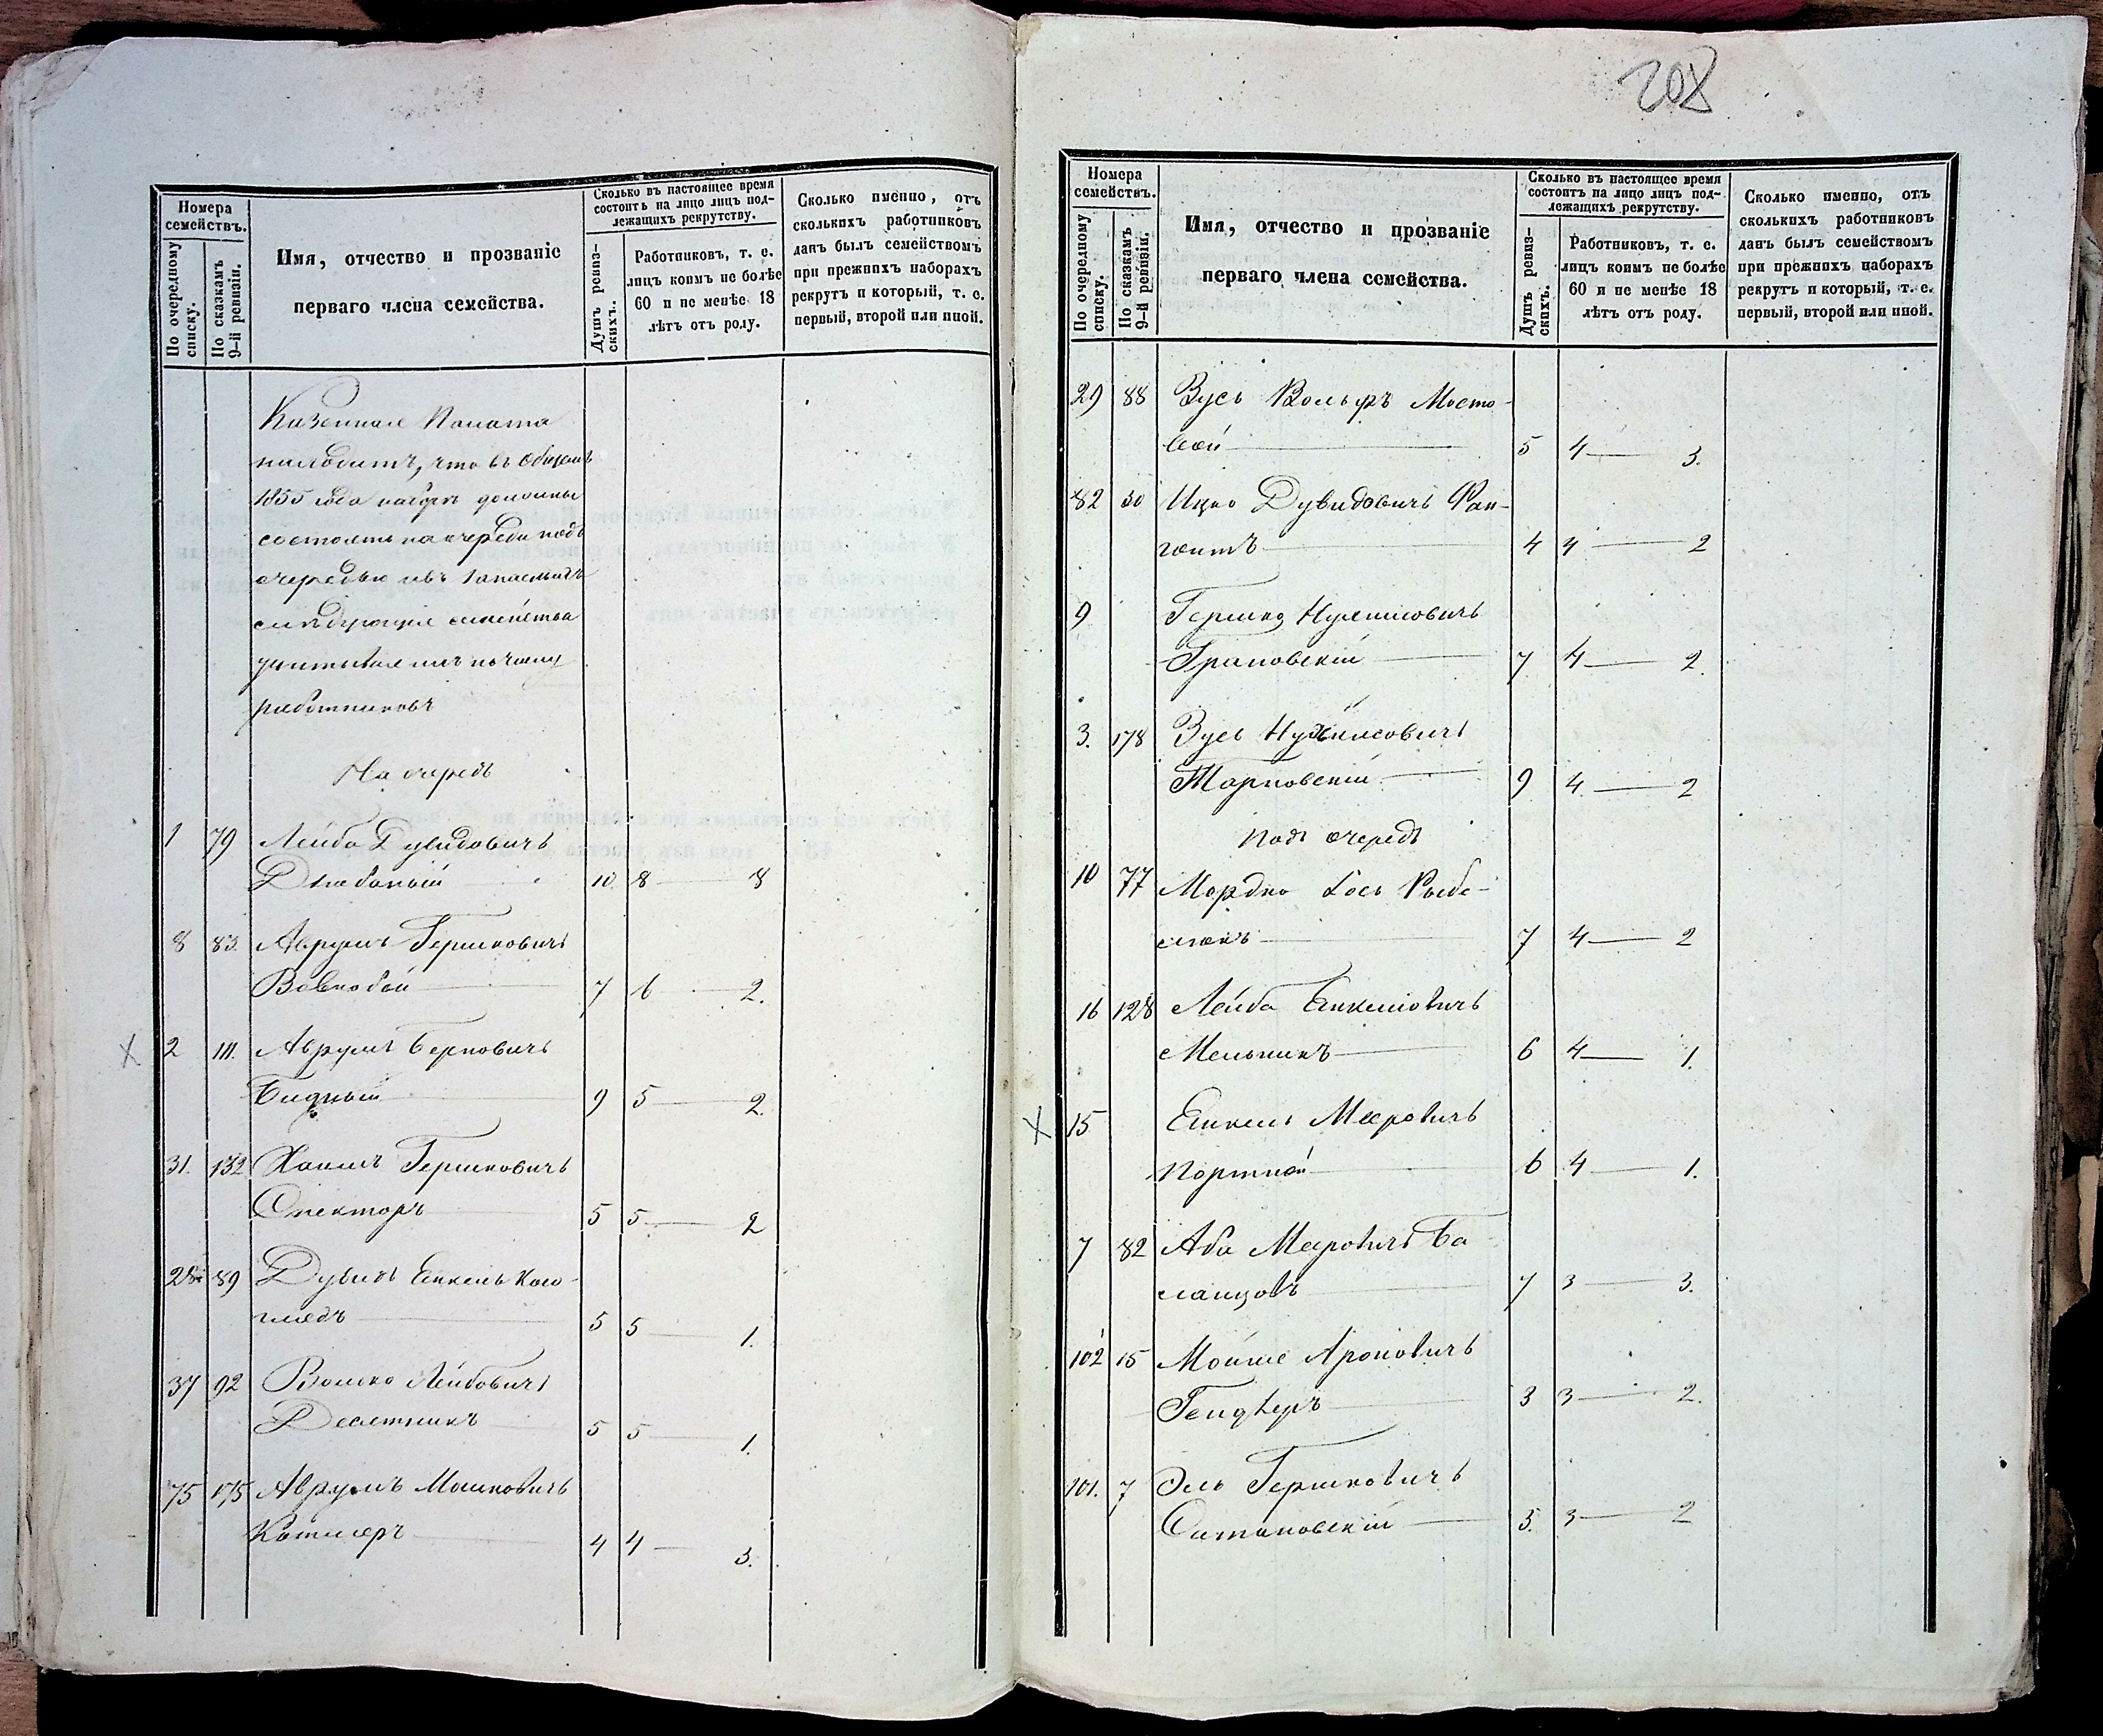 Номера семействъ.
По очередному списку.
По сказкамъ 9-й ревизіи.
Имя, отчество и прозваніе
перваго члена семейства.
Сколько въ настоящее время
состоитъ на лицо лицъ под-
лежащихъ рекрутству.
Душъ ревиз-
скихъ.
Работниковъ, т. е.
лицъ коимъ не болѣе
60 и не менѣе 18
лѣтъ отъ роду.
Сколько именно, отъ
сколькихъ работниковъ
данъ былъ семействомъ
при прежнихъ наборахъ
рекрутъ и который, т. е.
первый, второй или иной.
Казенная Палата
находитъ, что въ общемъ
1855 года наборѣ должны
состоять на очереди подъ
очередью и въ запасныхъ
слѣдующія семейства
учитывая ихъ по числу
работниковъ
На очередь
1 79 Лейба Дувидовичъ
10. 8 — 8
8 83. Аврумъ Гершковичъ
Вовкобой 7 6 — 2.
2 111. Аврумъ Берковичъ
Бидный 9 5 — 2.
31. 132 Хаимъ Гершковичъ
Спекторъ 5 5 — 2
28 89 Дувидъ Енкель Косо-
глядъ 5 5 — 1.
37 92 Волько Лейбовичъ
Десятникъ 5 5 — 1.
75 175 Аврумъ Мошковичъ
Котлеръ 4 4 — 3.
208
Номера семействъ.
По очередному списку.
По сказкамъ 9-й ревизіи.
Имя, отчество и прозваніе
перваго члена семейства.
Сколько въ настоящее время
состоитъ на лицо лицъ под-
лежащихъ рекрутству.
Душъ ревиз-
скихъ.
Работниковъ, т. е.
лицъ коимъ не болѣе
60 и не менѣе 18
лѣтъ отъ роду.
Сколько именно, отъ
сколькихъ работниковъ
данъ былъ семействомъ
при прежнихъ наборахъ
рекрутъ и который, т. е.
первый, второй или иной.
29 88 Зусь Вольфъ Мосто-
вой 5 4 — 3.
82 30 Ицко Дувидовичъ
4 4 — 2
9 Гершко
Грановскій 7 4 — 2.
3. 178 Зусь Нухимовичъ
Тарновскій 9 4 — 2
Подъ очередь
10 77 Мордко Іось
7 4 — 2
16 128 Лейба Енкелiовичъ
Мельникъ 6 4 — 1.
15 Енкель Мееровичъ
Портной 6 4 — 1.
7 82 Аба Мееровичъ Ба-
7 3 — 3.
102 15 Мойше Ароновичъ
3 3 — 2.
101. 7 Эль Гершковичъ
Сатановскій 3. 3 — 2